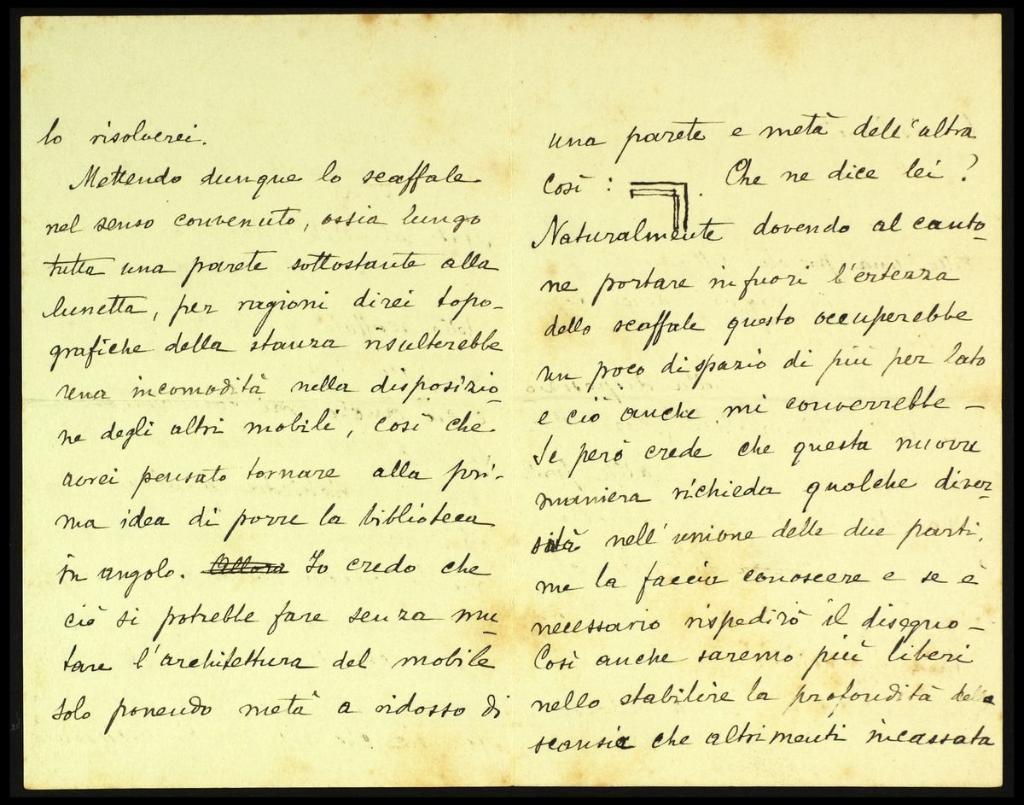 lo risolverei.
Mettendo dunque lo scaffale
nel senso convenuto, ossia lungo
tutta una parete sottostante alla
lunetta, per ragioni direi topo-
grafiche della stanza risulterebbe
una incomodità nella disposizio-
ne degli altri mobili, così che
avrei pensato tornare alla pri-
ma idea di porre la biblioteca
in angolo. Allora Io credo che
ciò si potrebbe fare senza mu-
tare l'architettura del mobile
solo ponendo metà a ridosso di
una parete e metà dell'altra
Così : . Che ne dice lei ?
Naturalmente dovendo al canto-
ne portare in fuori l'ertezza
dello scaffale questo occuperebbe
un poco di spazio di più per lato
e ciò anche mi converrebbe –
Se però crede che questa nuova
maniera richieda qualche diver-
sità nell'unione delle due parti,
me la faccia conoscere e se è
necessario rispedirò il disegno –
Così anche saremo più liberi
nello stabilire la profondità della
scansia che altrimenti incassata